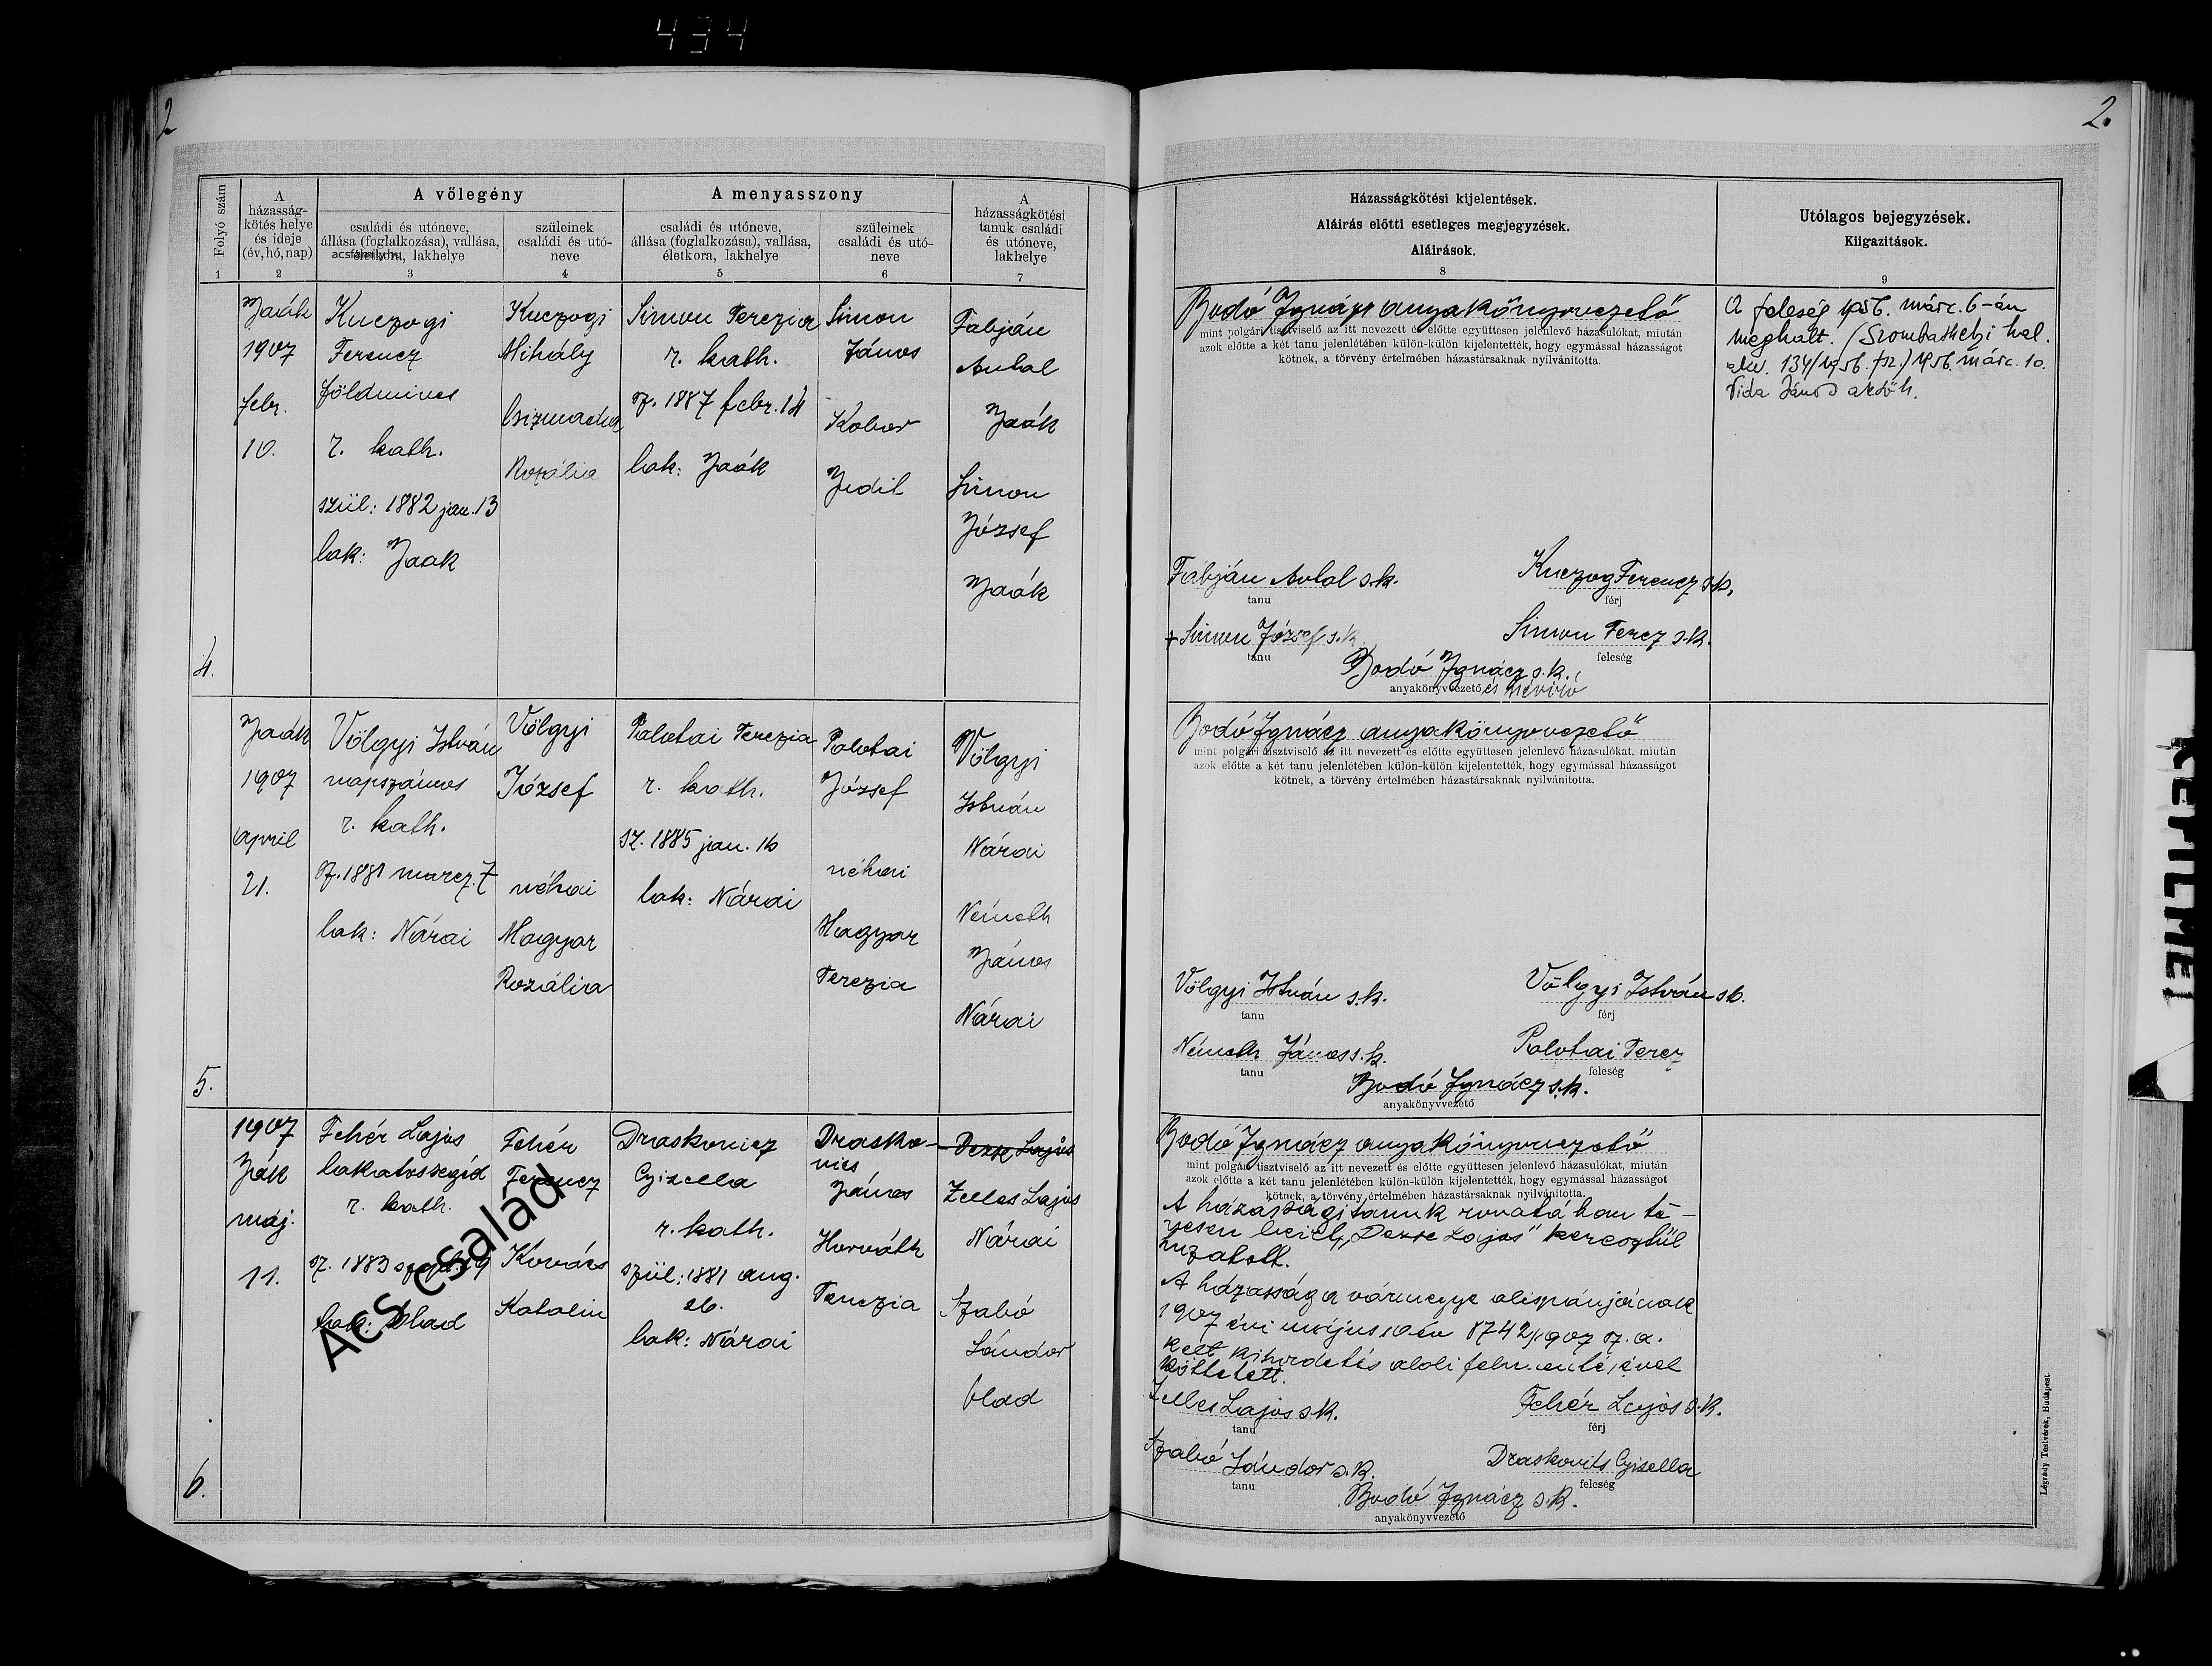 434
2
2.
Folyó szám
1
A
házasság-
kötés helye
és ideje
(év, hó, nap)
2
A vőlegény
családi és utóneve,
állása (foglalkozása), vallása,
életkora, lakhelye
3
szüleinek
családi és utó-
neve
4
A menyasszony
családi és utóneve,
állása (foglalkozása), vallása,
életkora, lakhelye
5
szüleinek
családi és utó-
neve
6
A
házasságkötési
tanuk családi
és utóneve,
lakhelye
7
Házasságkötési kijelentések.
Aláirás előtti esetleges megjegyzések.
Aláirások.
8
Utólagos bejegyzések.
Kiigazitások.
9
4.
Jaák
1907
febr.
10.
Kuczogi
Ferencz
földmives
r. kath.
szül: 1882 jan. 13
lak: Jaak
Kuczogi
Mihály
Csizmadia
Rozália
Simon Terezia
r. kath.
sz. 1887 febr. 14
lak: Jaák
Simon
János
Kobor
Judit
Fabján
Antal
Jaák
Simon
József
Jaák
Bodó Ignácz anyakönyvvezető
mint polgári tisztviselő az itt nevezett és előtte együttesen jelenlevő házasulókat, miután
azok előtte a két tanu jelenlétében külön-külön kijelentették, hogy egymással házasságot
kötnek, a törvény értelmében házastársaknak nyilvánitotta.
Fabján Antal s.k.
tanu
Kuczog Ferencz s.k.
férj
+ Simon József s.k.
tanu
Simon Terez s.k.
feleség
Bodó Ignácz s.k.
anyakönyvvezető és névíró
A feleség 1956. márc. 6-án
meghalt. (Szombathelyi hal.
akv. 134/1956. fsz.) 1956. márc. 10.
Vida János
5.
Jaák
1907
april
21.
Völgyi István
napszámos
r. kath.
sz. 1881 marcz. 7
lak: Nárai
Völgyi
József
néhai
Magyar
Rozália
Palotai Terezia
r. kath.
sz. 1885 jan. 16
lak: Nárai
Palotai
József
néhai
Magyar
Terezia
Völgyi
István
Nárai
Németh
János
Nárai
Bodó Ignácz anyakönyvvezető
mint polgári tisztviselő az itt nevezett és előtte együttesen jelenlevő házasulókat, miután
azok előtte a két tanu jelenlétében külön-külön kijelentették, hogy egymással házasságot
kötnek, a törvény értelmében házastársaknak nyilvánitotta.
Völgyi István s.k.
tanu
Völgyi István sk.
férj
Németh János s.k.
tanu
Palotai Terez
feleség
Bodó Ignácz s.k.
anyakönyvvezető
6.
1907
Ják
máj.
11.
Fehér Lajos
lakatossegéd
r. kath.
sz. 1883
lak: Olad
Fehér
Ferencz
Kovács
Katalin
Draskovicz
Gizella
r. kath.
szül: 1881 aug.
26.
lak: Nárai
Drasko-
vics
János
Horváth
Terezia
Dezse Lajos
Zelles Lajos
Nárai
Szabó
Sándor
Olad
Bodó Ignácz anyakönyvvezető
mint polgári tisztviselő az itt nevezett és előtte együttesen jelenlevő házasulókat, miután
azok előtte a két tanu jelenlétében külön-külön kijelentették, hogy egymással házasságot
kötnek, a törvény értelmében házastársaknak nyilvánitotta.
A házassági tanuk rovatában té-
vesen beirt „Dezse Lajos" keresztül
huzatott.
A házasság a vármegye alispánjának
1907 évi május 10 én 8742/1907 sz. a.
kelt kihirdetés alóli felmentésével
köttetett.
Zelles Lajos s.k.
tanu
Fehér Lajos s.k.
férj
Szabó Sándor s.k.
tanu
Draskovits Gizella
feleség
Bodó Ignácz s.k.
anyakönyvvezető
Légrády Testvérek, Budapest.
Acs család